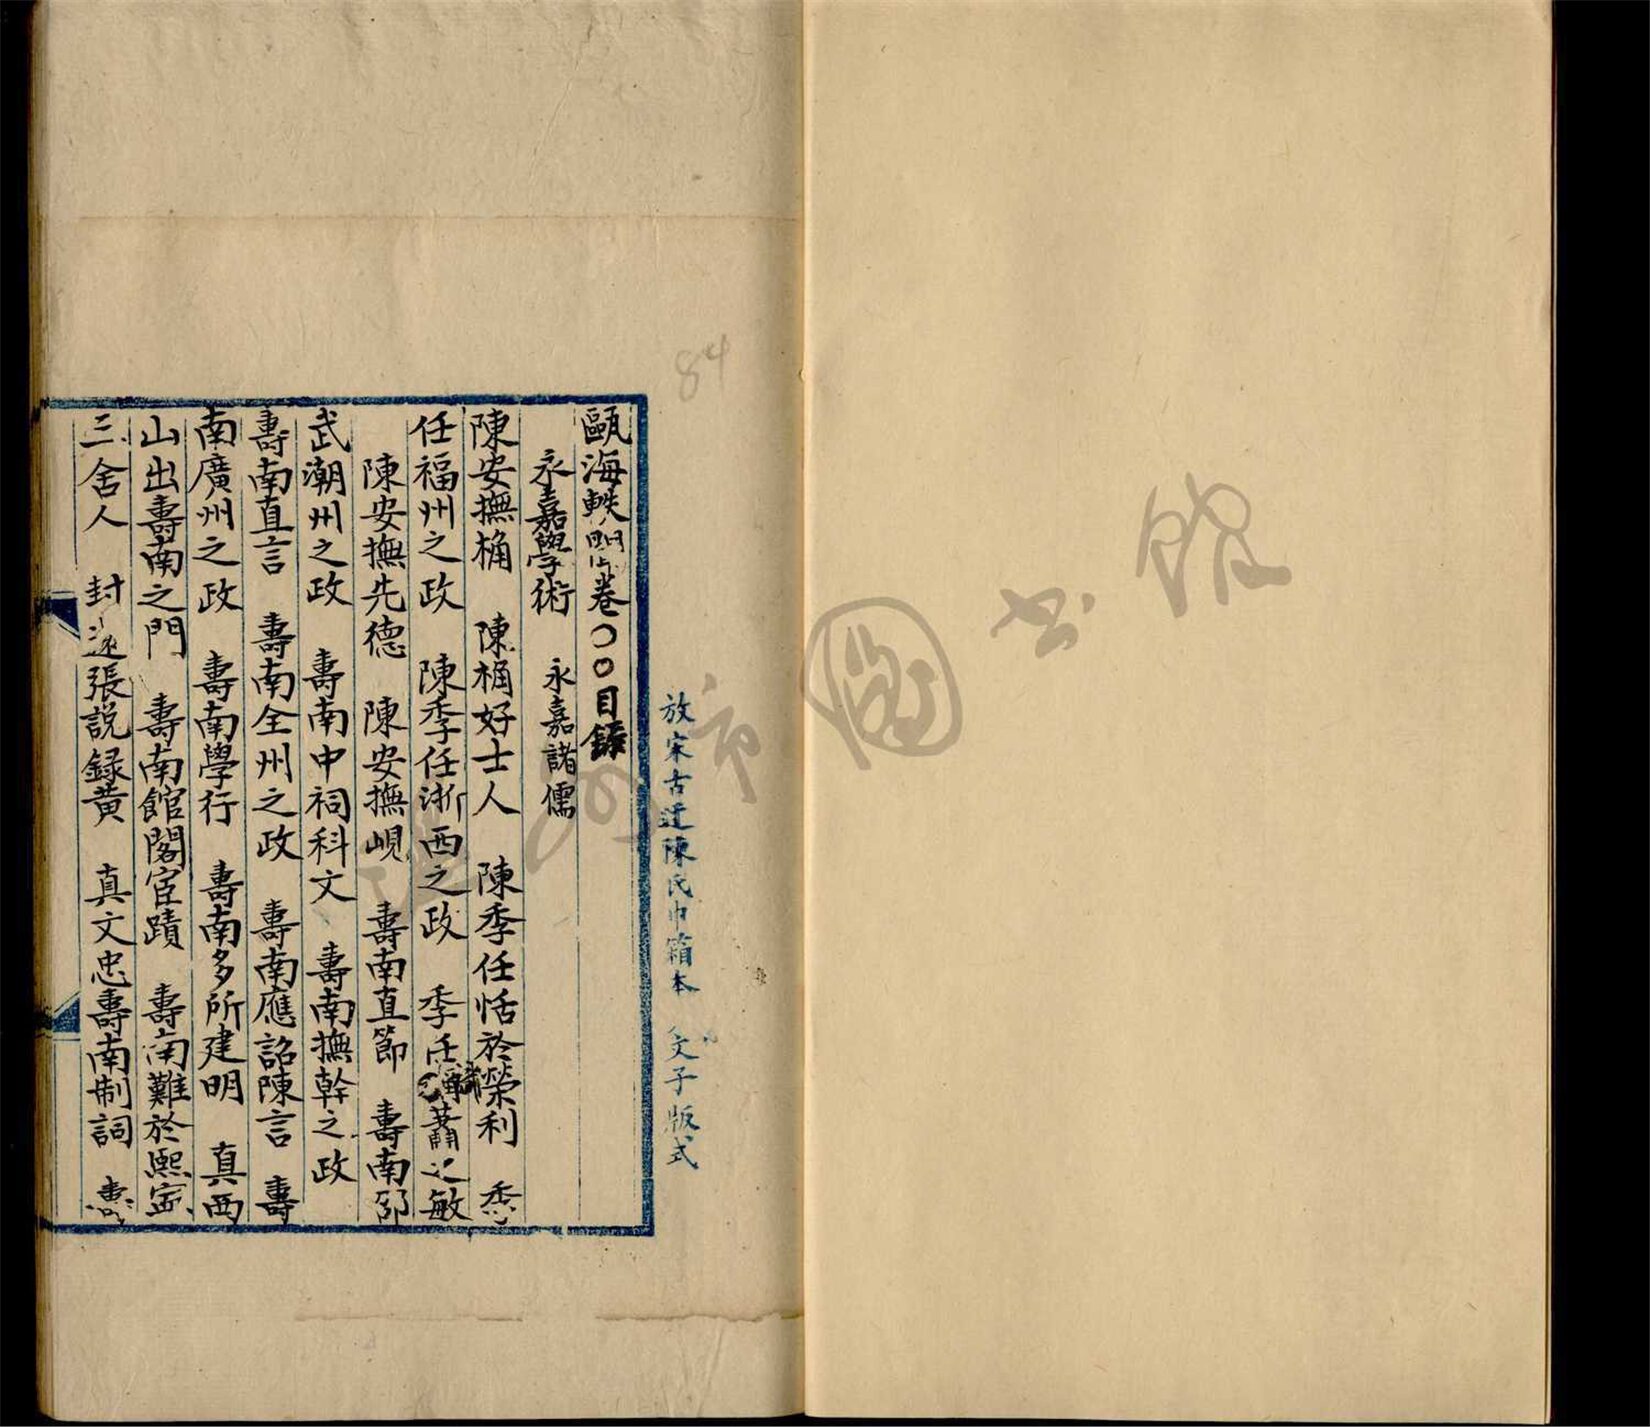 放宋古迂陳氏巾箱本 文子版式
甌海軼聞卷〇〇目錄
永嘉學術 永嘉諸儒
陳安撫桷 陳桷好士人 陳季任恬於榮利 季
任福州之政 陳季任浙西之政 季任 之敏
陳安撫先德 陳安撫峴 壽南直節 壽南邵
武潮州之政 壽南中祠科文 壽南撫幹之政
壽南直言 壽南全州之政 壽南應詔陳言 壽
南廣州之政 壽南學行 壽南多所建明 真西
山出壽南之門 壽南館閣宦蹟 壽南難於熙寧
三舍人 封還張說録黃 真文忠壽南制詞 壽
84
溫州市圖书館